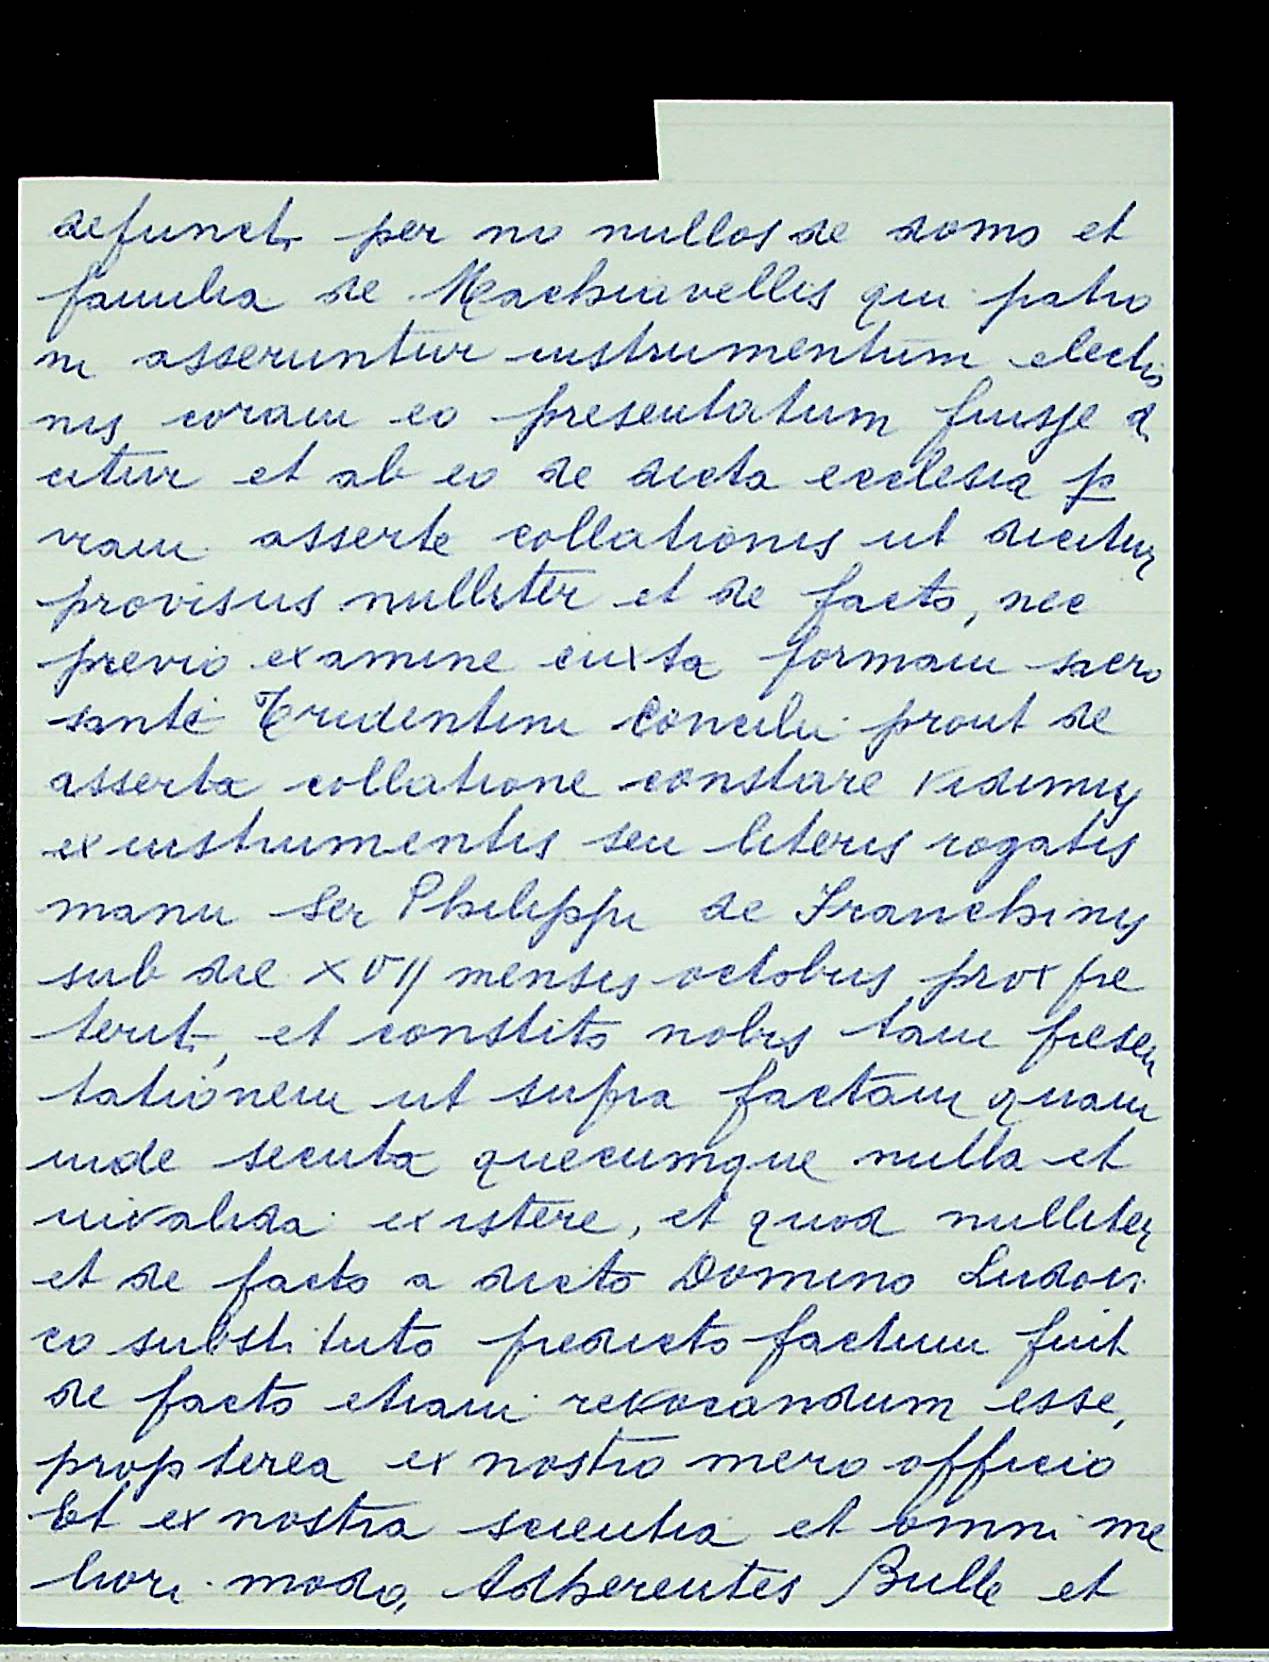 defunct. per no nullos de domo et
familia de Machiavellis qui patro
ni asseruntur instrumentum electio
nis coram eo presentatum fuisse di
citur et ab eo de dicta ecclesia p
viam asserte collationis ut dicitur
provisus nulliter et de facto, nec
previo examine iuxta formam sacro
santi Tridentini Concilii prout de
asserta collatione constare vidimus
ex instrumentis seu literis rogatis
manu Ser Philippi de Franchinis
sub die XVII mensis octobris prox pre
terit., et constito nobis tam presen
tationem ut supra factam quam
inde secuta quecumque nulla et
invalida existere, et quod nulliter
et de facto a dicto Domino Ludovi
co substituto predicto factum fuit
de facto etiam revocandum esse,
propterea ex nostro mero officio
Et ex nostra scientia et omni me
liori modo, Adherentes Bulle et